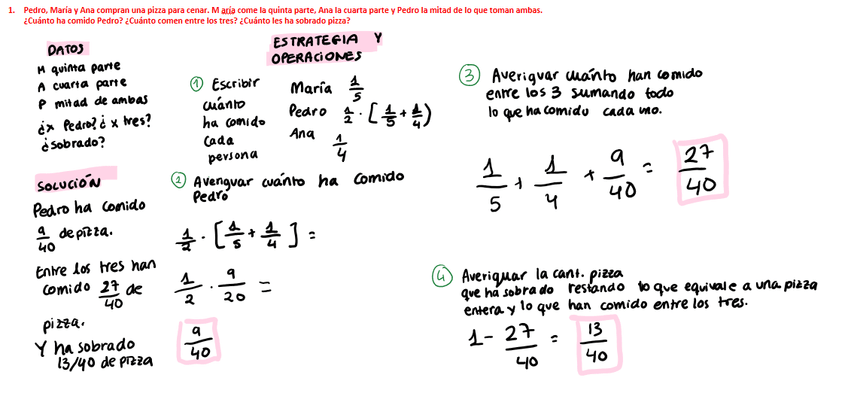 1. Pedro, María y Ana compran una pizza para cenar. M aría come la quinta parte, Ana la cuarta parte y Pedro la mitad de lo que toman ambas.
¿Cuánto ha comido Pedro? ¿Cuánto comen entre los tres? ¿Cuánto les ha sobrado pizza?
DATOS
M quinta parte
A cuarta parte
P mitad de ambas
¿x Pedro? ¿x tres?
¿sobrado?
SOLUCIÓN
Pedro ha comido
9/40 de pizza.
Entre los tres han
comido 27/40 de
pizza.
Y ha sobrado
13/40 de pizza
ESTRATEGIA Y
OPERACIONES
① Escribir
cuánto
ha comido
cada
persona
María 1/5
Pedro 1/2 · [1/5 + 1/4)
Ana 1/4
② Averiguar cuánto ha comido
Pedro
1/2 · [1/5 + 1/4] =
1/2 · 9/20 =
9/40
③ Averiguar cuánto han comido
entre los 3 sumando todo
lo que ha comido cada uno.
1/5 + 1/4 + 9/40 = 27/40
④ Averiguar la cant. pizza
que ha sobrado restando lo que equivale a una pizza
entera y lo que han comido entre los tres.
1 - 27/40 = 13/40